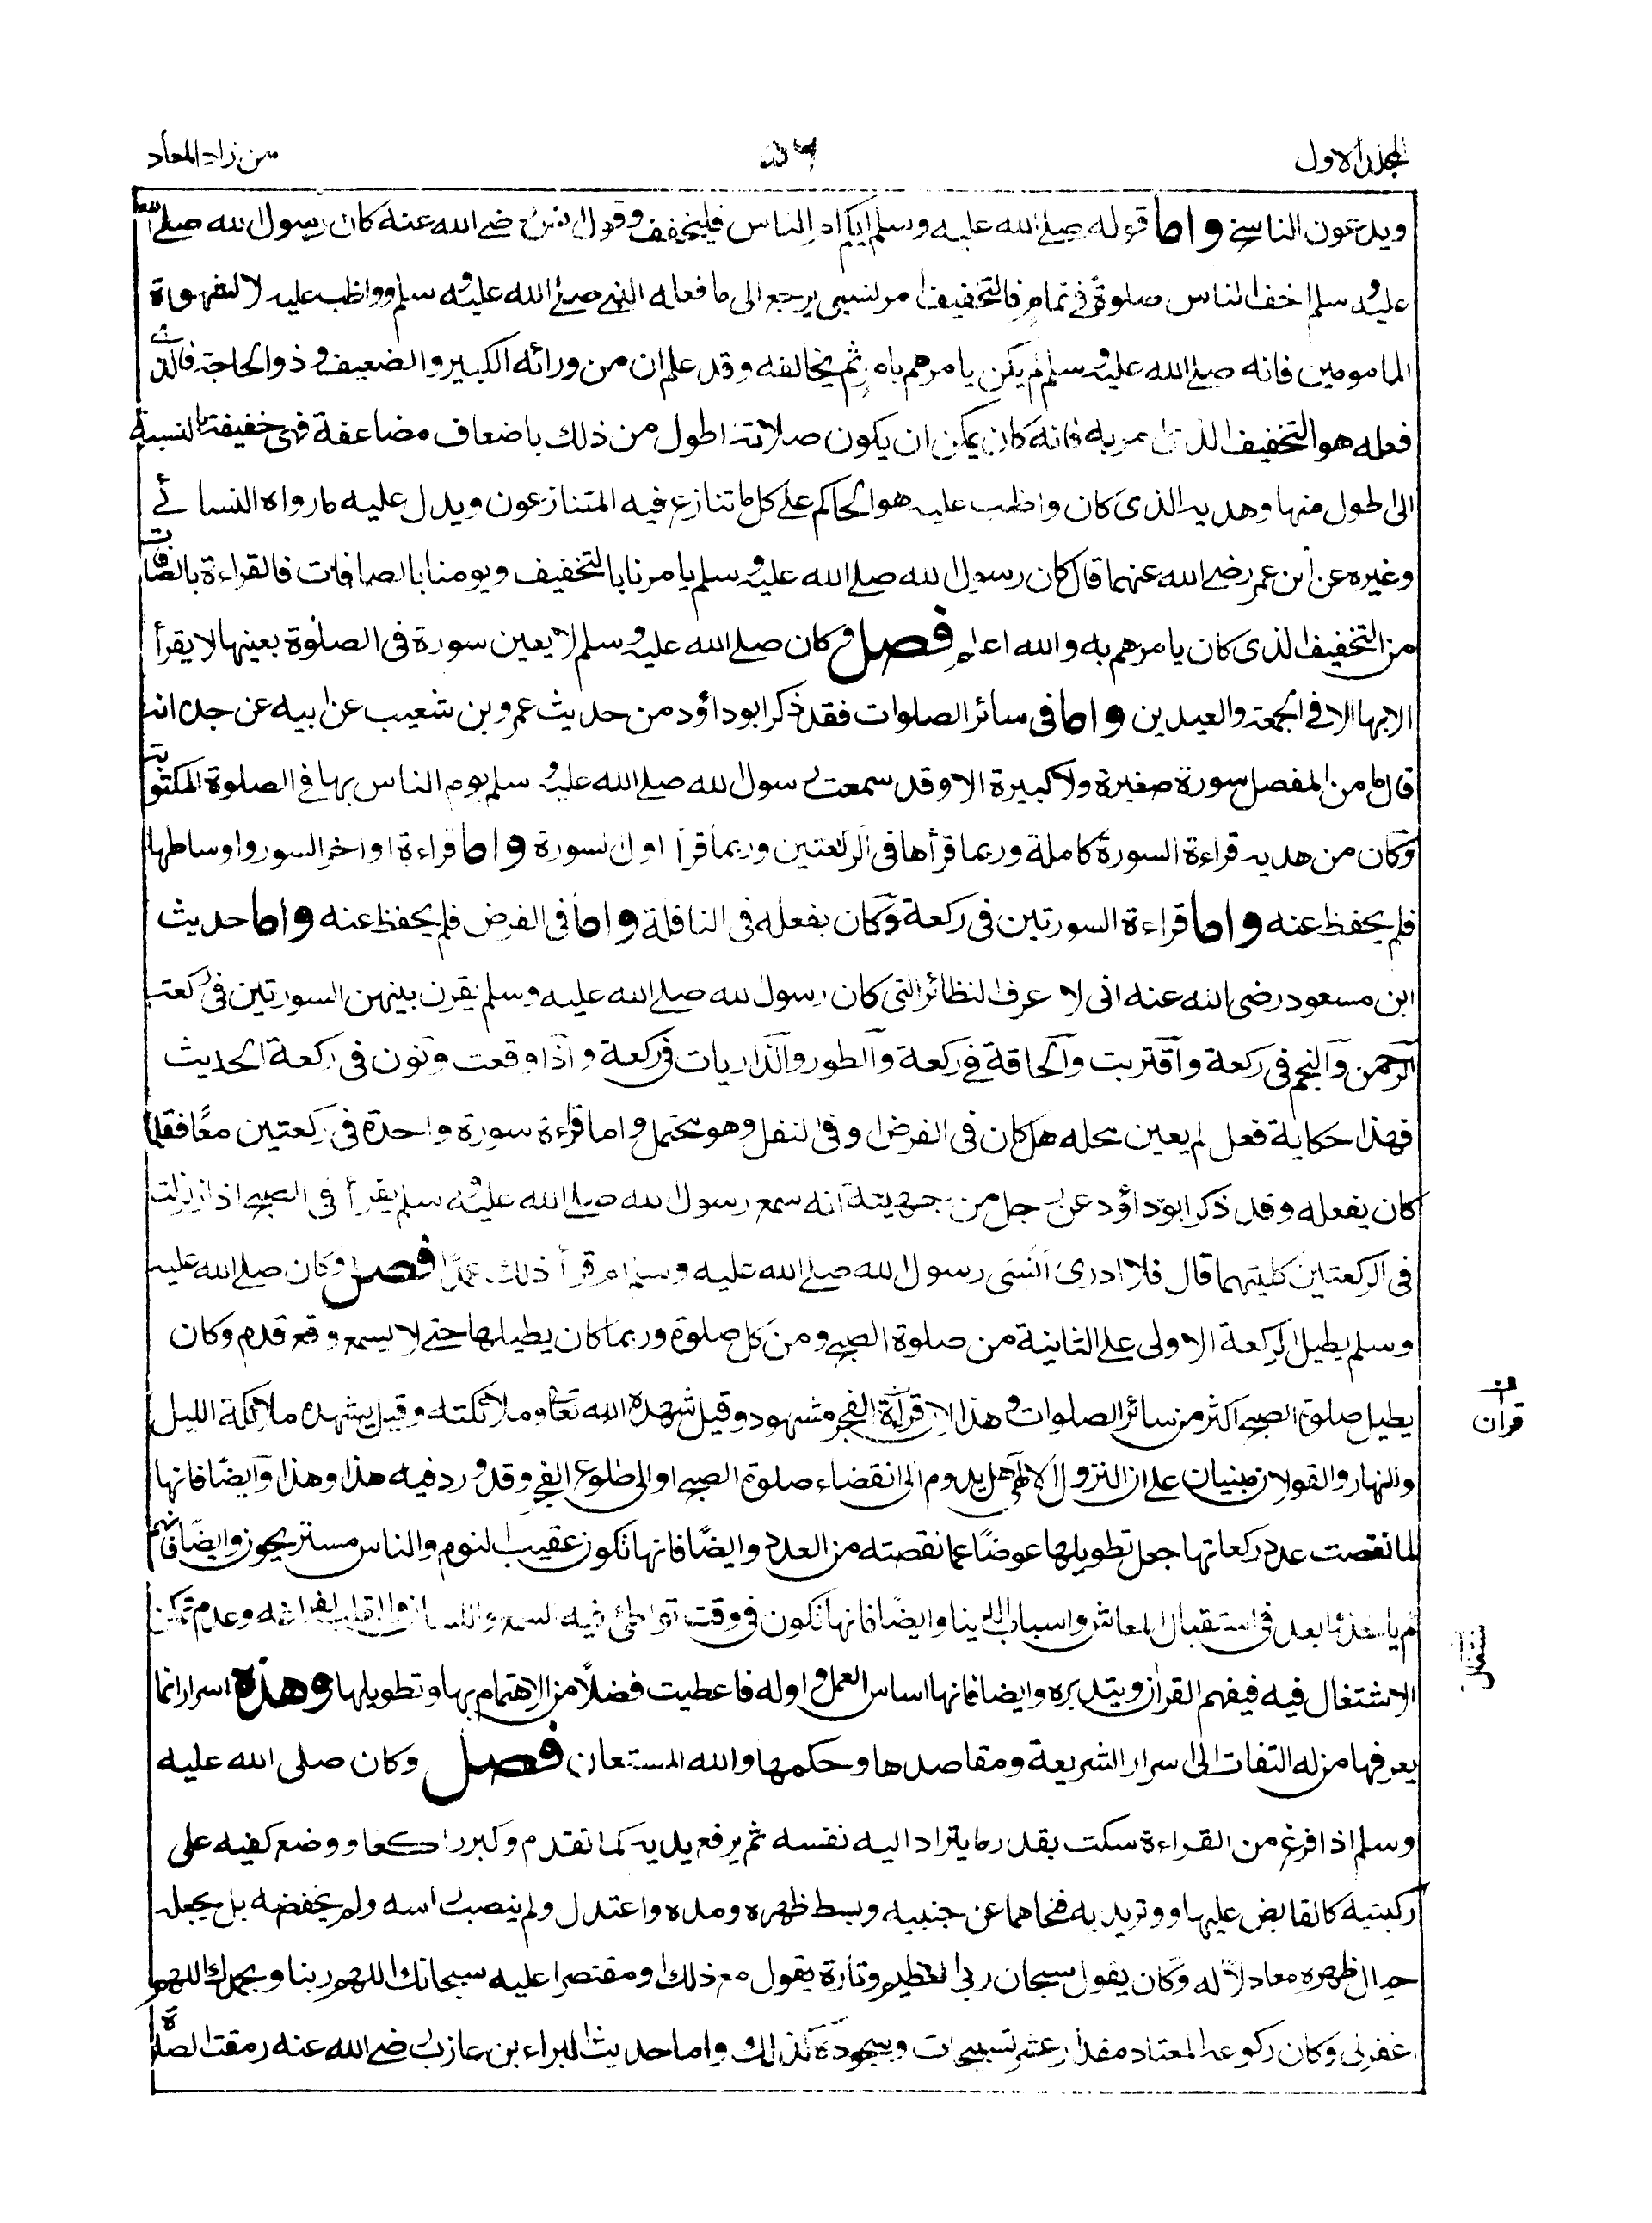 المجلد الاول
٥٦
من زاد المعاد
ويدعون الناسخ واما قوله صلى الله عليه وسلم ايكم ام الناس فليخفف وقول انس رضى الله عنه كان رسول الله صلى الله
عليه وسلم اخف الناس صلوة فى تمام فالتخفيف امر نسبى يرجع الى ما فعله النبى صلى الله عليه وسلم وواظب عليه لا لشهوة
المامومين فانه صلى الله عليه وسلم لم يكن يامرهم بامر ثم يخالفه وقد علم ان من ورائه الكبير والضعيف وذو الحاجة فالذى
فعله هو التخفيف الذى امر به فانه كان يمكن ان يكون صلاته اطول من ذلك باضعاف مضاعفة فهى خفيفة بالنسبة
الى اطول منها وهديه الذى كان واظب عليه هو الحاكم على كل ما تنازع فيه المتنازعون ويدل عليه ما رواه النسائى
وغيره عن ابن عمر رضى الله عنهما قال كان رسول الله صلى الله عليه وسلم يامرنا بالتخفيف ويومنا بالصافات فالقراءة بالصافات
من التخفيف الذى كان يامرهم به والله اعلم فصل وكان صلى الله عليه وسلم لا يعين سورة فى الصلوة بعينها لا يقرأ
الا بها الا فى الجمعة والعيدين واما فى سائر الصلوات فقد ذكر ابو داؤد من حديث عمرو بن شعيب عن ابيه عن جده انه
قال ما من المفصل سورة صغيرة ولا كبيرة الا وقد سمعت رسول الله صلى الله عليه وسلم يوم الناس بها فى الصلوة المكتوبة
وكان من هديه قراءة السورة كاملة وربما قرأها فى الركعتين وربما قرأ اول السورة واما قراءة اواخر السور واوساطها
فلم يحفظ عنه واما قراءة السورتين فى ركعة وكان يفعله فى النافلة واما فى الفرض فلم يحفظ عنه واما حديث
ابن مسعود رضى الله عنه انى لا عرف النظائر التى كان رسول الله صلى الله عليه وسلم يقرن بينهن السورتين فى ركعة
الرحمن والنجم فى ركعة واقتربت والحاقة فى ركعة والطور والذاريات فى ركعة واذا وقعت ونون فى ركعة الحديث
فهذا حكاية فعل لم يعين محله هل كان فى الفرض او فى النفل وهو محتمل واما قراءة سورة واحدة فى ركعتين معًا فقلما
كان يفعله وقد ذكر ابو داؤد عن رجل من جهينة انه سمع رسول الله صلى الله عليه وسلم يقرأ فى الصبح اذا زلزلت
فى الركعتين كليتهما قال فلا ادرى انسى رسول الله صلى الله عليه وسلم ام قرأ ذلك عمدًا فصل وكان صلى الله عليه
وسلم يطيل الركعة الاولى على الثانية من صلوة الصبح ومن كل صلوة وربما كان يطيلها حتى لا يسمع وقع قدم وكان
يطيل صلوة الصبح اكثر من سائر الصلوات وهذا لان قرآن الفجر مشهود وقيل شهده الله تعالى وملائكته وقيل يشهده ملائكة الليل
والنهار والقولان مبنيان على ان النزول الالهى هل يدوم الى انقضاء صلوة الصبح او الى طلوع الفجر وقد ورد فيه هذا وهذا وايضًا فانها
لما نقصت عدد ركعاتها جعل تطويلها عوضًا عما نقصته من العدد وايضًا فانها تكون عقيب النوم والناس مستريحون وايضًا فانهم
لم ياخذوا بعد فى استقبال المعاش واسباب الدنيا وايضًا فانها تكون فى وقت تواطئ فيه السمع واللسان والقلب لفراغه وعدم تمكن
الاشتغال فيه فيفهم القران ويتدبره وايضا فانها اساس العمل واوله فاعطيت فضلًا من الاهتمام بها وتطويلها وهذه اسرار انما
يعرفها من له التفات الى اسرار الشريعة ومقاصدها وحكمها والله المستعان فصل وكان صلى الله عليه
وسلم اذا فرغ من القراءة سكت بقدر ما يتراد اليه نفسه ثم يرفع يديه كما تقدم وكبر راكعا ووضع كفيه على
ركبتيه كالقابض عليها ووتر يديه فنحاهما عن جنبيه وبسط ظهره ومده واعتدل ولم ينصب راسه ولم يخفضه بل يجعله
حيال ظهره معادلًا له وكان يقول سبحان ربى العظيم وتارة يقول مع ذلك او مقتصرا عليه سبحانك اللهم ربنا وبحمدك اللهم
اغفر لى وكان ركوعه المعتاد مقدار عشر تسبيحات وسجوده كذلك واما حديث البراء بن عازب رضى الله عنه رمقت الصلوة
قران
اشتغال